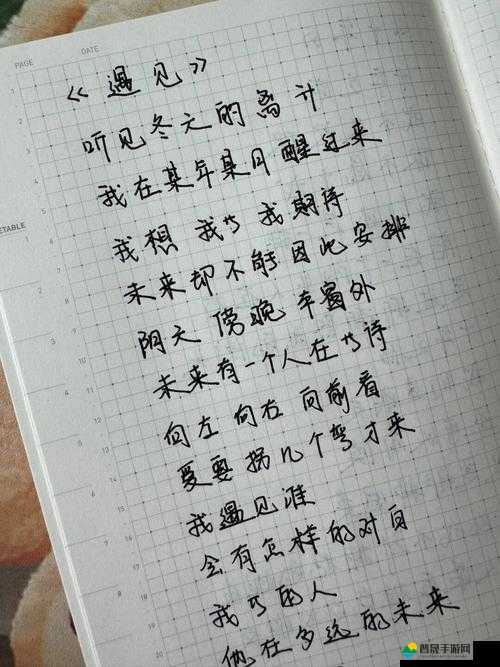 PAGE
DATE
《遇见》
听见冬天的离开
我在某年某月醒过来
我想 我等 我期待
未来却不能因此安排
阴天 傍晚 车窗外
未来有一个人在等待
向左 向右 向前看
爱要拐几个弯才来
我遇见谁
会有怎样的对白
我等的人
他在多远的未来
普晟手游网